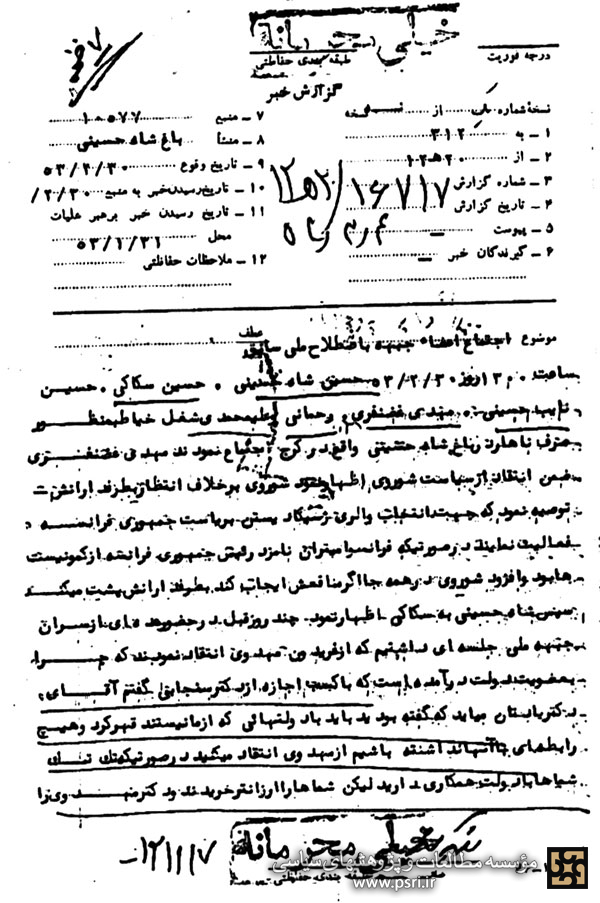 خیلی محرمانه
درجه فوریت
طبقه بندی حفاظتی
گزارش خبر
نسخه شماره یک از نسخه
۱ ـ به ۳۱۲
۲ ـ از ۲۰ هـ ۱۲
۳ ـ شماره گزارش ۱۶۷۱۷
۴ ـ تاریخ گزارش
۵ ـ پیوست
۶ ـ گیرندگان خبر
۷ ـ منبع ۱۰۵۷۷
۸ ـ منشأ باغ شاه حسینی
۹ ـ تاریخ وقوع ۵۳/۲/۳۰
۱۰ ـ تاریخ رسیدن خبر به منبع ۲/۳۰/
۱۱ ـ تاریخ رسیدن خبر برهبر عملیات
محل ۵۳/۲/۳۱
۱۲ ـ ملاحظات حفاظتی
موضوع اجتماع اعضاء جبهه باصطلاح ملی سابق
عطف
ساعت ۱۳۰۰ روز ۵۳/۲/۳۰ حسین شاه حسینی ، حسین سکاکی ، حسین
نایب حسینی ، مهدی غضنفری ، رحمانی شغل خیاط بمنظور
صرف ناهار در باغ شاه حسینی واقع در کرج اجتماع نمودند مهدی غضنفری
ضمن انتقاد از سیاست شوروی اظهار نمود شوروی برخلاف انتظار بطرفدارانش
توصیه نمود که جهت انتخاب والری ژیسکار دستن بریاست جمهوری فرانسه
فعالیت نمایند در صورتیکه فرانسوا میتران نامزد رئیس جمهوری فرانسه از کمونیست
ها بود وافزود شوروی در همه جا اگر منافعش ایجاب کند بطرفدارانش پشت میکند
سپس شاه حسینی به سکاکی اظهار نمود . چند روز قبل در حضور عده ای از سران
جبهه ملی جلسه ای داشتیم که از فریدون مهدوی انتقاد نمودند که چرا
بعضویت دولت درآمده است که با کسب اجازه از دکتر سنجابی گفتم آقای
دکتر یادتان میاید که گفته بودید باید با دولتهائی که از ما نیستند قهر کرد و هیچ
رابطه ای با آنها نداشته باشیم از مهدوی انتقاد میکنید در صورتیکه تک تک
شماها با دولت همکاری دارید لیکن شماها را ارزانتر خریدند و دکتر مهدوی را
خیلی محرمانه
طبقه بندی حفاظتی
مؤسسه مطالعات و پژوهشهای سیاسی
www.psri.ir